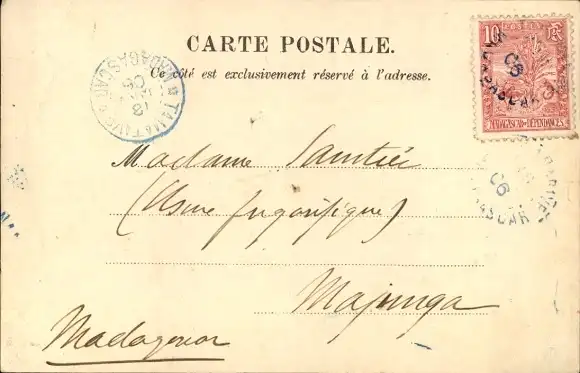 CARTE POSTALE.
Ce côté est exclusivement réservé à l'adresse.
10
MADAGASCAR ET DÉPENDANCES
TAMATAVE
MADAGASCAR
06
Madame
(Usine frigorifique)
Majunga
Madagascar